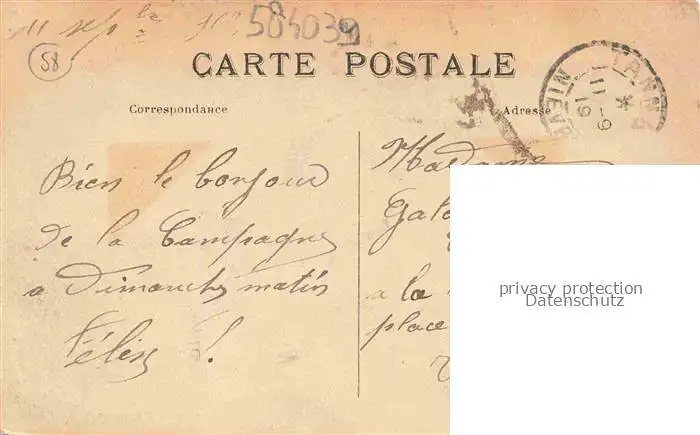 11 sep
584039
58
CARTE POSTALE
Correspondance
Adresse
TANN
NIEV
11
6-19
Bien le bonjour
de la Campagne
a Dimanche matin
Félix !
Madame
Gal
a la
place
privacy protection
Datenschutz